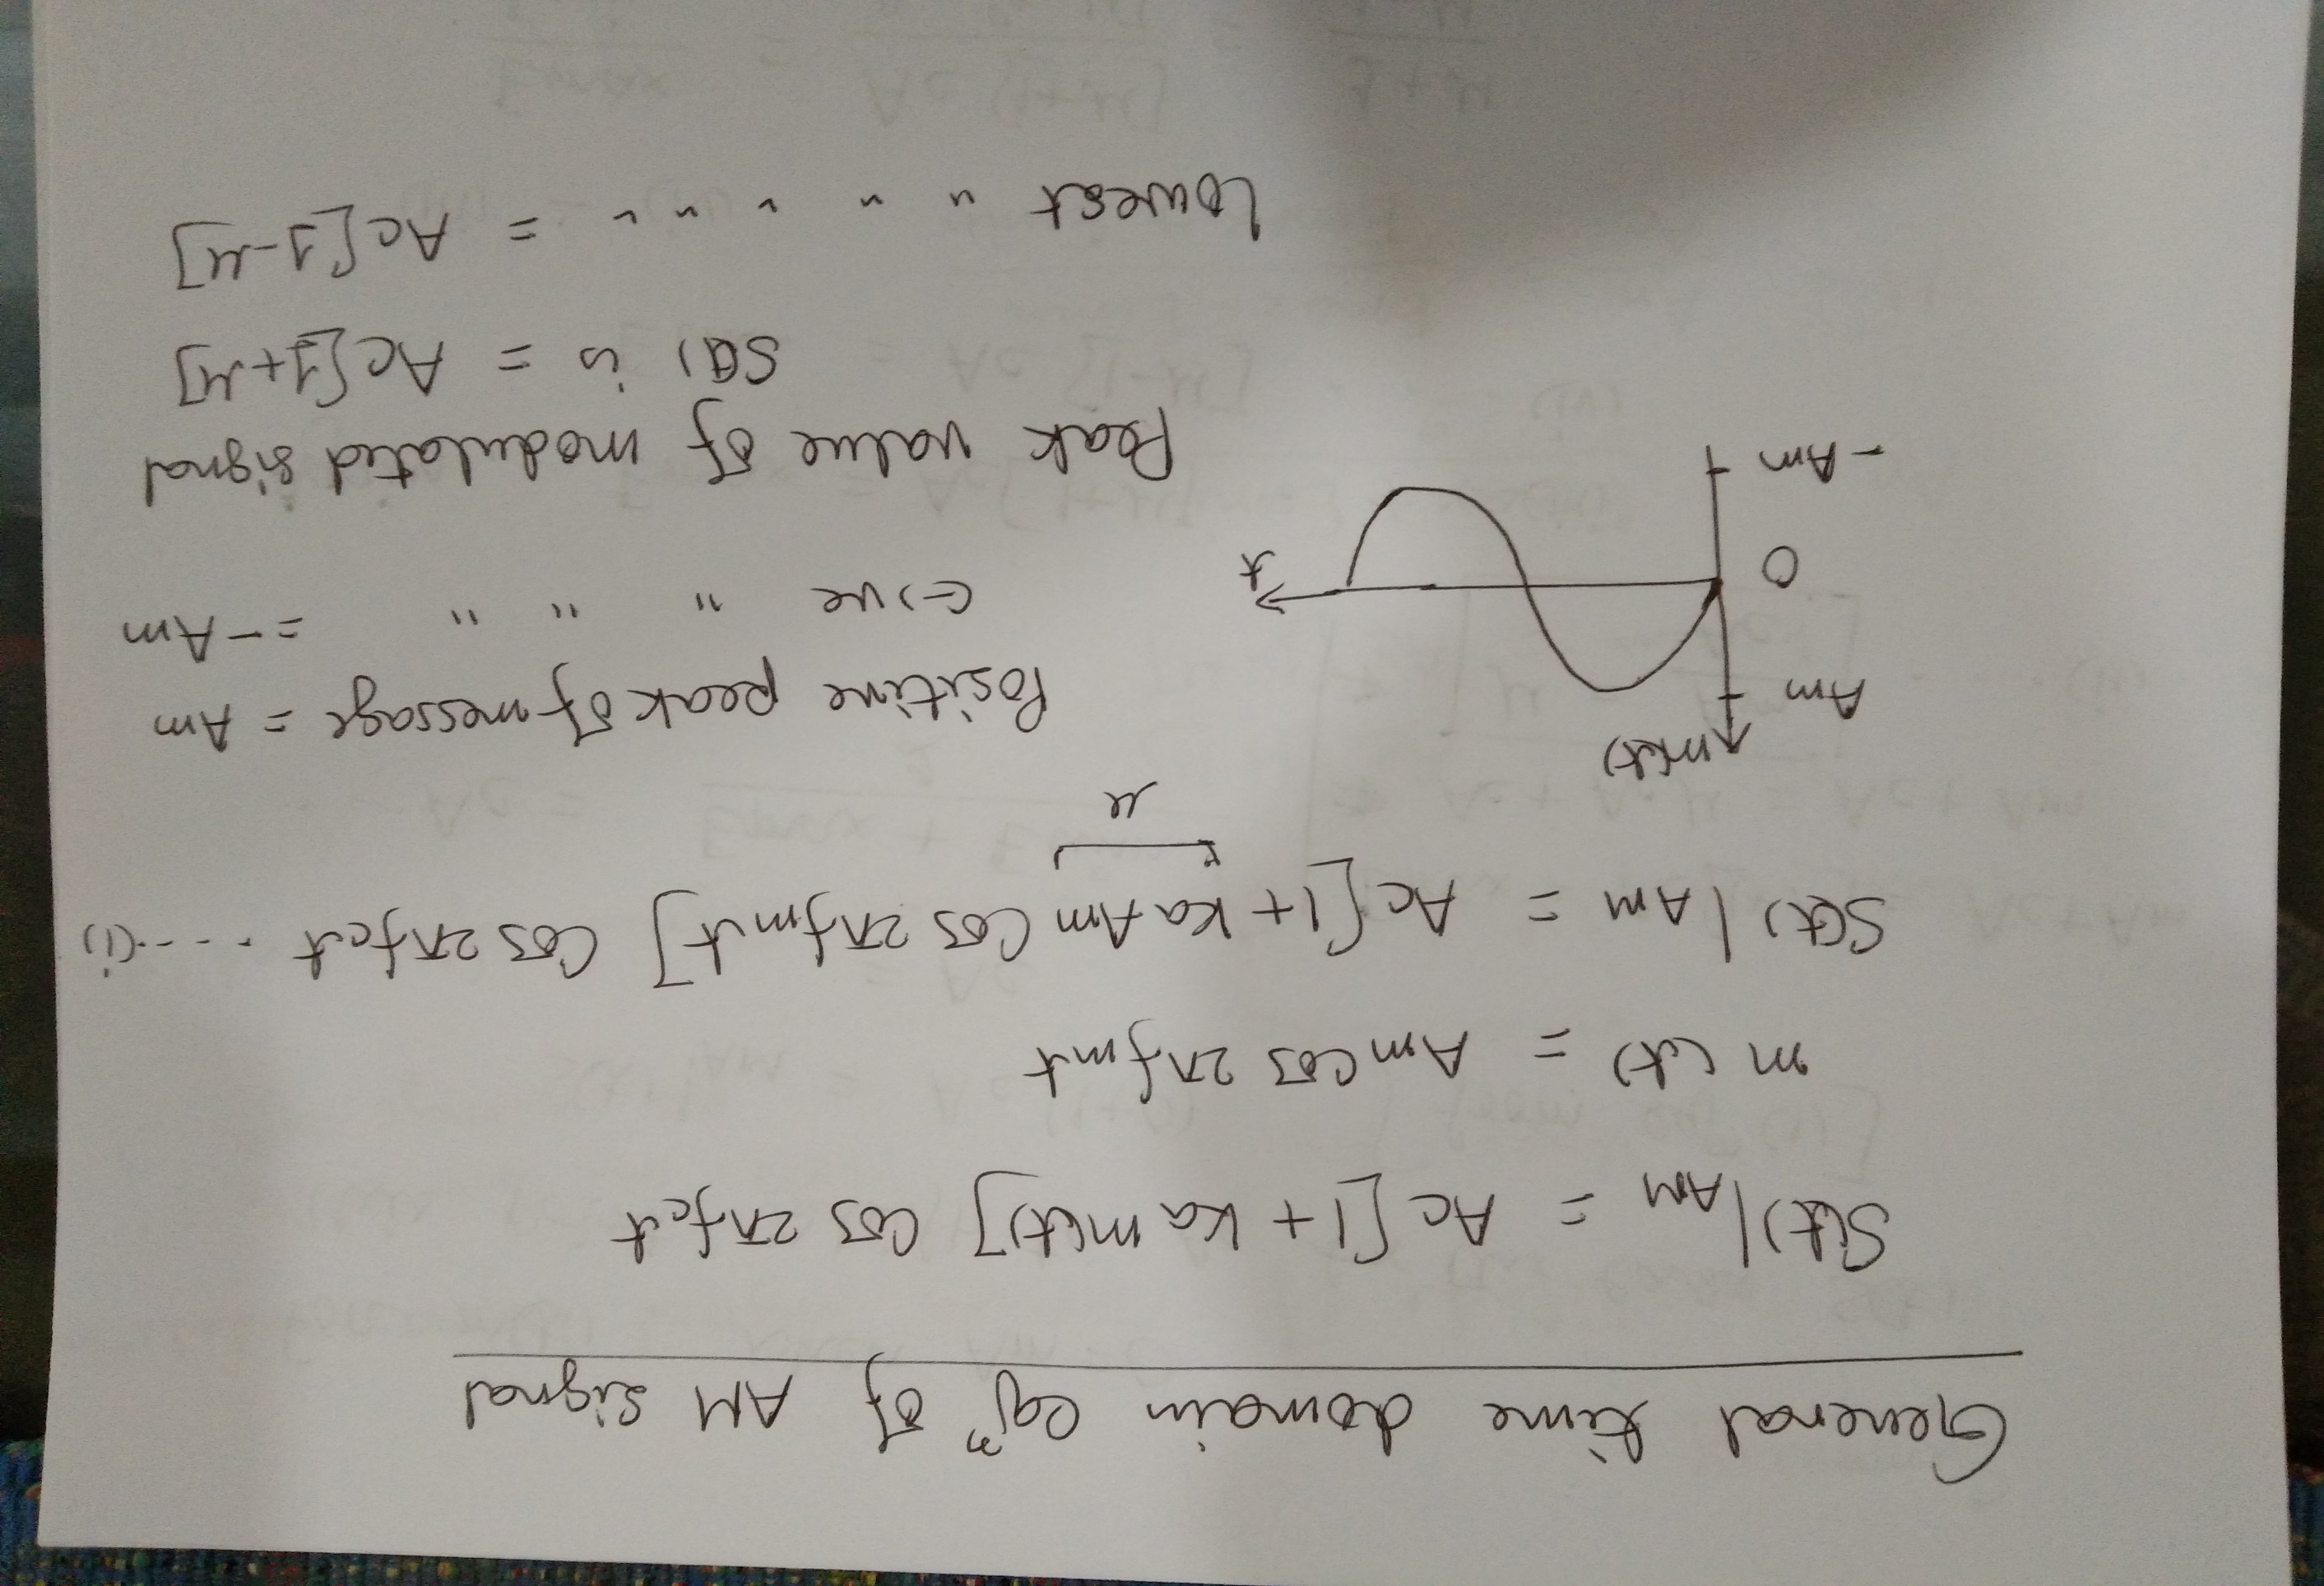 General time domain eqⁿ of AM signal
S(t)|AM = Ac[1 + ka m(t)] Cos 2πfct
m(t) = Am Cos 2πfmt
S(t)|AM = Ac[1 + kaAm Cos 2πfmt] Cos 2πfct ....(i)
μ
m(t)
Am
0
-Am
t
Positive peak of message = Am
(-)ve " " " = -Am
Peak value of modulated signal
S(t) is = Ac[1+μ]
Lowest " " " " " = Ac[1-μ]